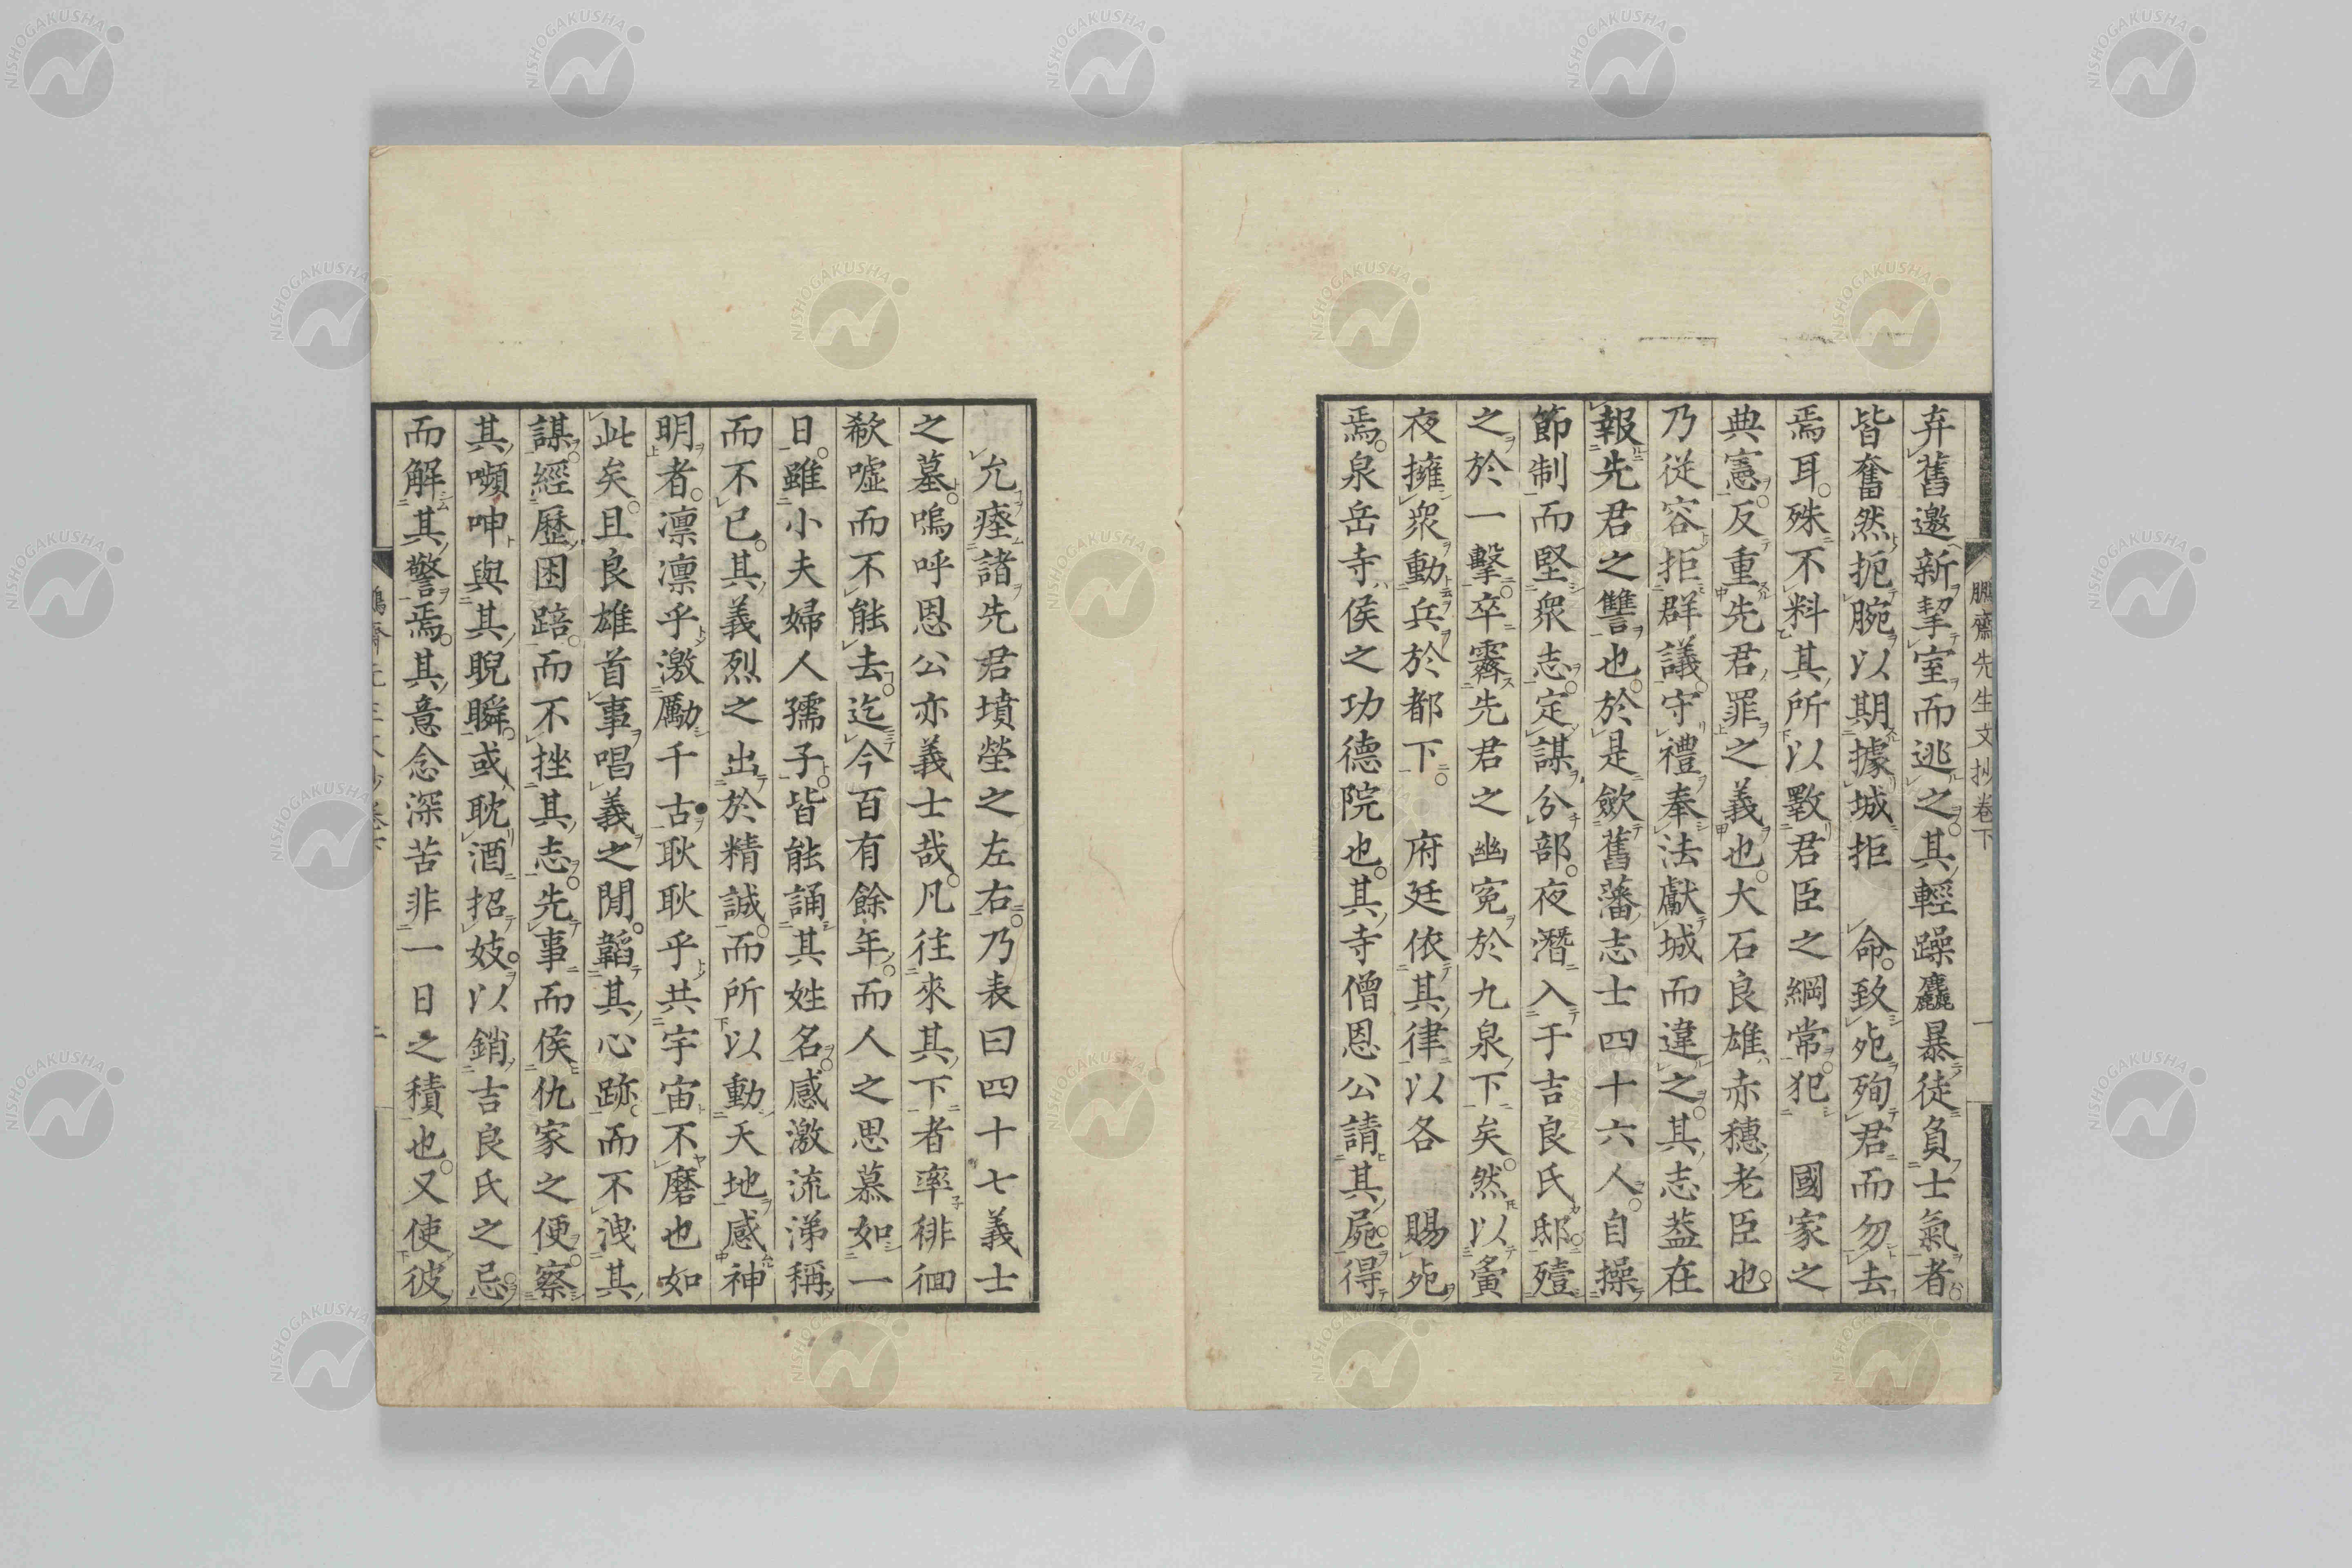 弃舊邀新挈室而逃之其輕躁麤暴徒負士氣者
皆奮然扼腕以期據城拒 命致死殉君而勿去
焉耳殊不料其所以斁君臣之綱常犯 國家之
典憲反重先君罪之義也大石良雄赤穗老臣也
乃從容拒群議守禮奉法獻城而違之其志葢在
報先君之讐也於是歛舊藩志士四十六人自操
節制而堅眾志定謀分部夜潛入于吉良氏邸殪
之於一擊卒霽先君之幽冤於九泉下矣然以
夜擁眾動兵於都下 府廷依其律以各 賜死
焉泉岳寺侯之功德院也其寺僧恩公請其屍得
允瘞諸先君墳塋之左右乃表曰四十七義士
之墓嗚呼恩公亦義士哉凡往來其下者率徘徊
欷嘘而不能去迄今百有餘年而人之思慕如一
日雖小夫婦人孺子皆能誦其姓名感激流涕稱
而不已其義烈之出於精誠而所以動天地感神
明者凛凛乎激勵千古耿耿乎共宇宙不磨也如
此矣且良雄首事唱義之間韜其心跡而不洩其
謀經歷困踣而不挫其志先事而侯仇家之便察
其嚬呻與其睨瞬或耽酒招妓以銷吉良氏之忌
而解其警焉其意念深苦非一日之積也又使彼
鵬齋先生文抄卷下
一
NISHOGAKUSHA